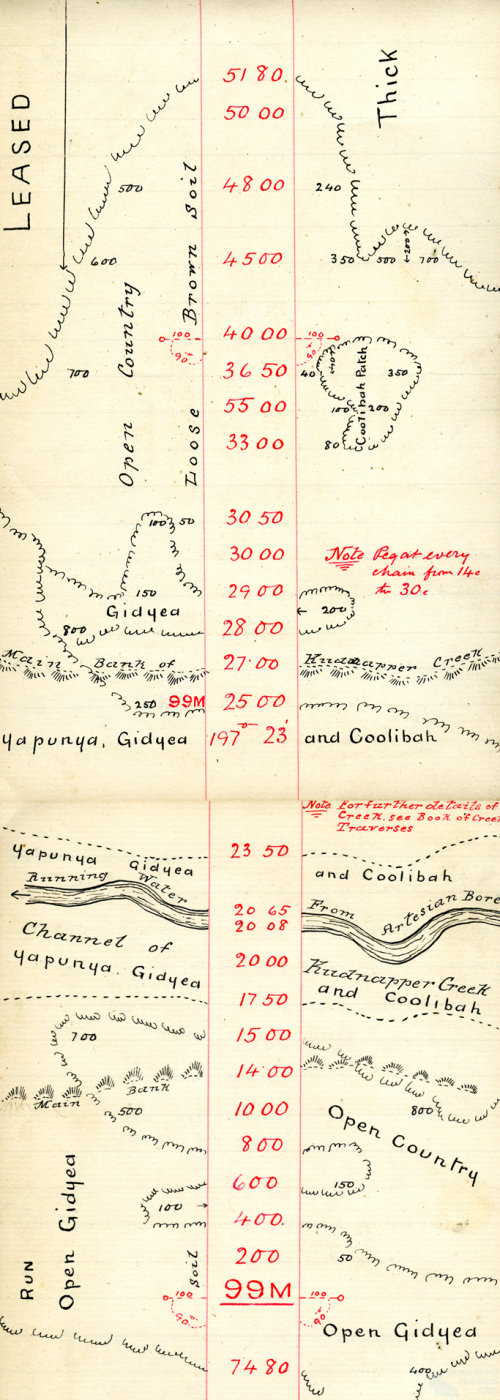 5180.
Thick
LEASED
50 00
500 4800 240
600 4500 350 500 200 700
Brown Soil
Open Country
100 40 00 100
90° 90°
700 36 50 40 400 350
55 00 100 200
Coolibah Patch
Loose 33 00 80
100 50 30 50
30 00 Note Peg at every
chain from 14c
to 30c
150 29 00
Gidyea 200
800 28 00
Main Bank of 27.00 Kudnapper Creek
250 99M 25 00
Yapunya, Gidyea 197° 23' and Coolibah
Note For further details of
Creek, see Book of Creek
Traverses
23 50
Yapunya Gidyea and Coolibah
Running Water 20 65 From Artesian Bore
20 08
Channel of 20 00 Kudnapper Creek
Yapunya. Gidyea and Coolibah
17 50
700 15 00
14.00
Main Bank
500 10 00 800
Open Country
800
600 150
100 400.
200 50
RUN Open Gidyea Soil
99M
100 100
90° 90°
Open Gidyea
74 80 400